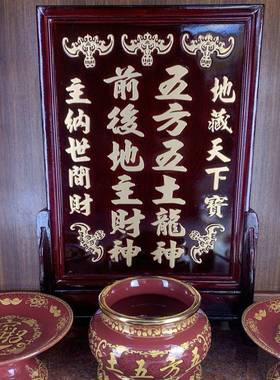 地藏天下寶
五方五土龍神
前後地主財神
主納世間財
土五方